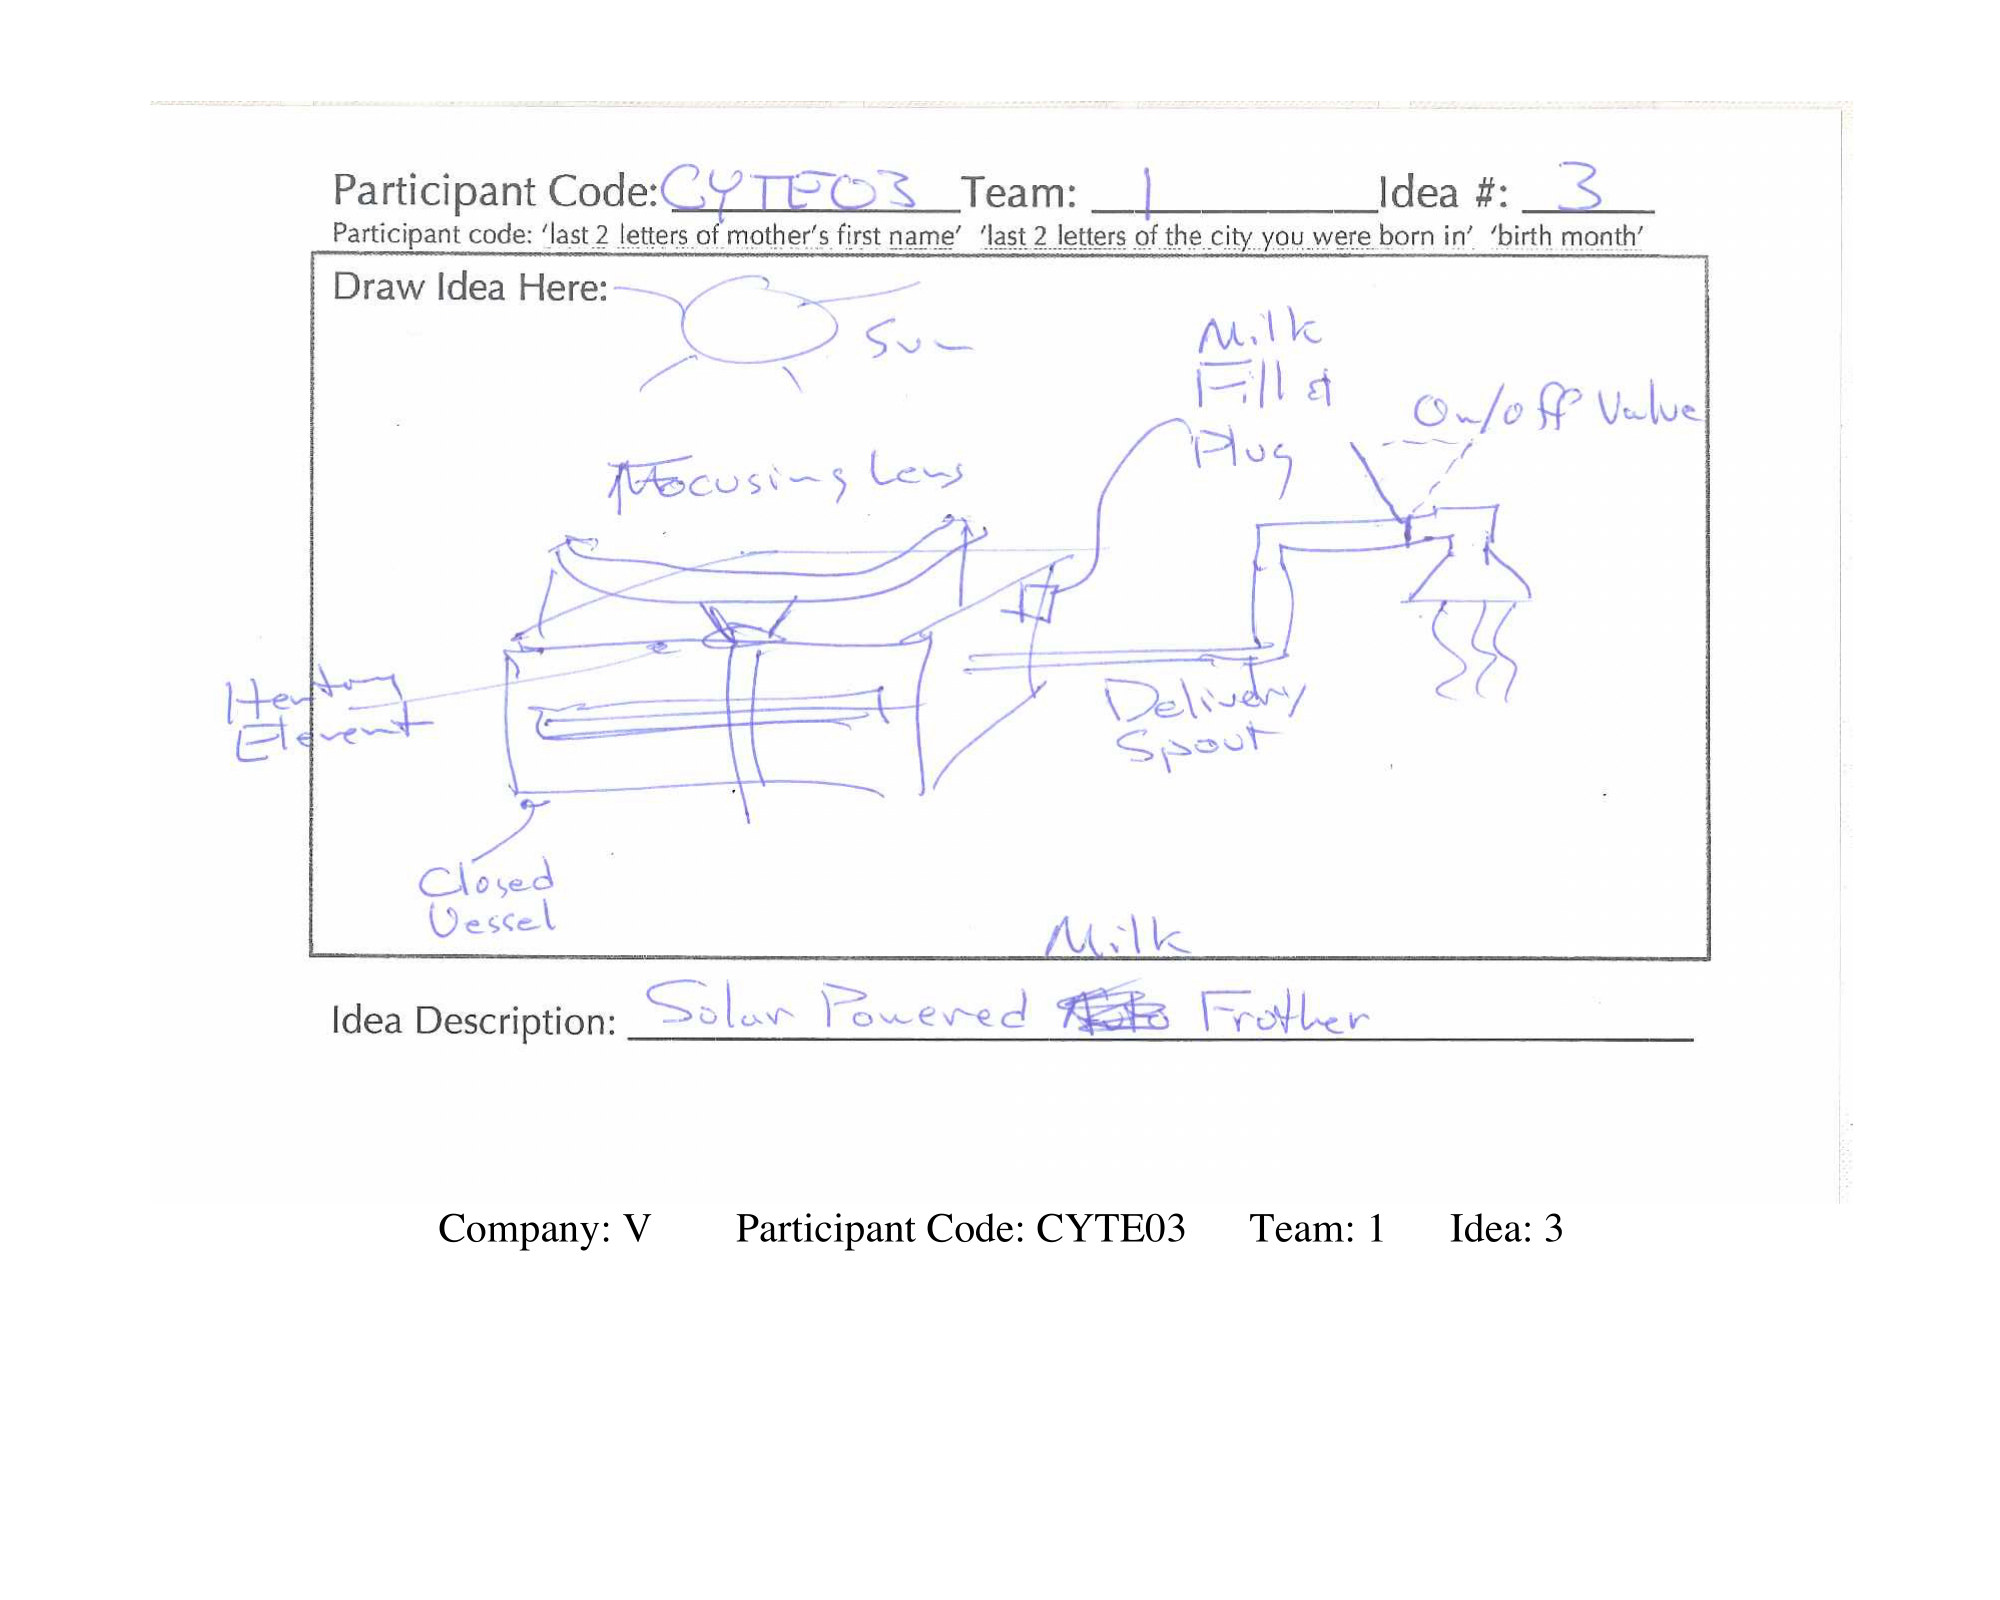 Participant Code: CYTE03 Team: 1 Idea #: 3
Participant code: ‘last 2 letters of mother’s first name’ ‘last 2 letters of the city you were born in’ ‘birth month’
Draw Idea Here:
Sun
Milk
Fill &
Plug
On/off Valve
Focusing Lens
Heating
Element
Delivery
Spout
Closed
Vessel
Milk
Idea Description: Solar Powered Frother
Company: V Participant Code: CYTE03 Team: 1 Idea: 3